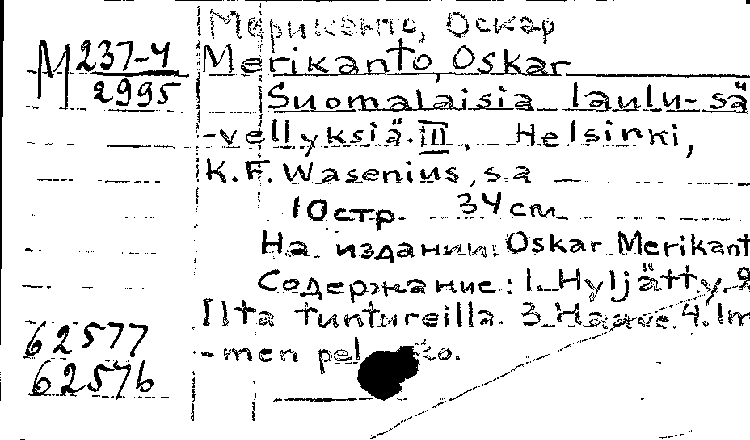 Мериканто, Оскар
М 237-4
2995
Merikanto, Oskar
Suomalaisia laulu-sä
-vellyksiä. III, Helsinki,
K. F. Wasenius, s.a
10 стр. 34 см
На издании: Oskar Merikant
Содержание: 1. Hyljätty. 2
Ilta tuntureilla. 3. Haave. 4. Im
-men pel
62577
62576